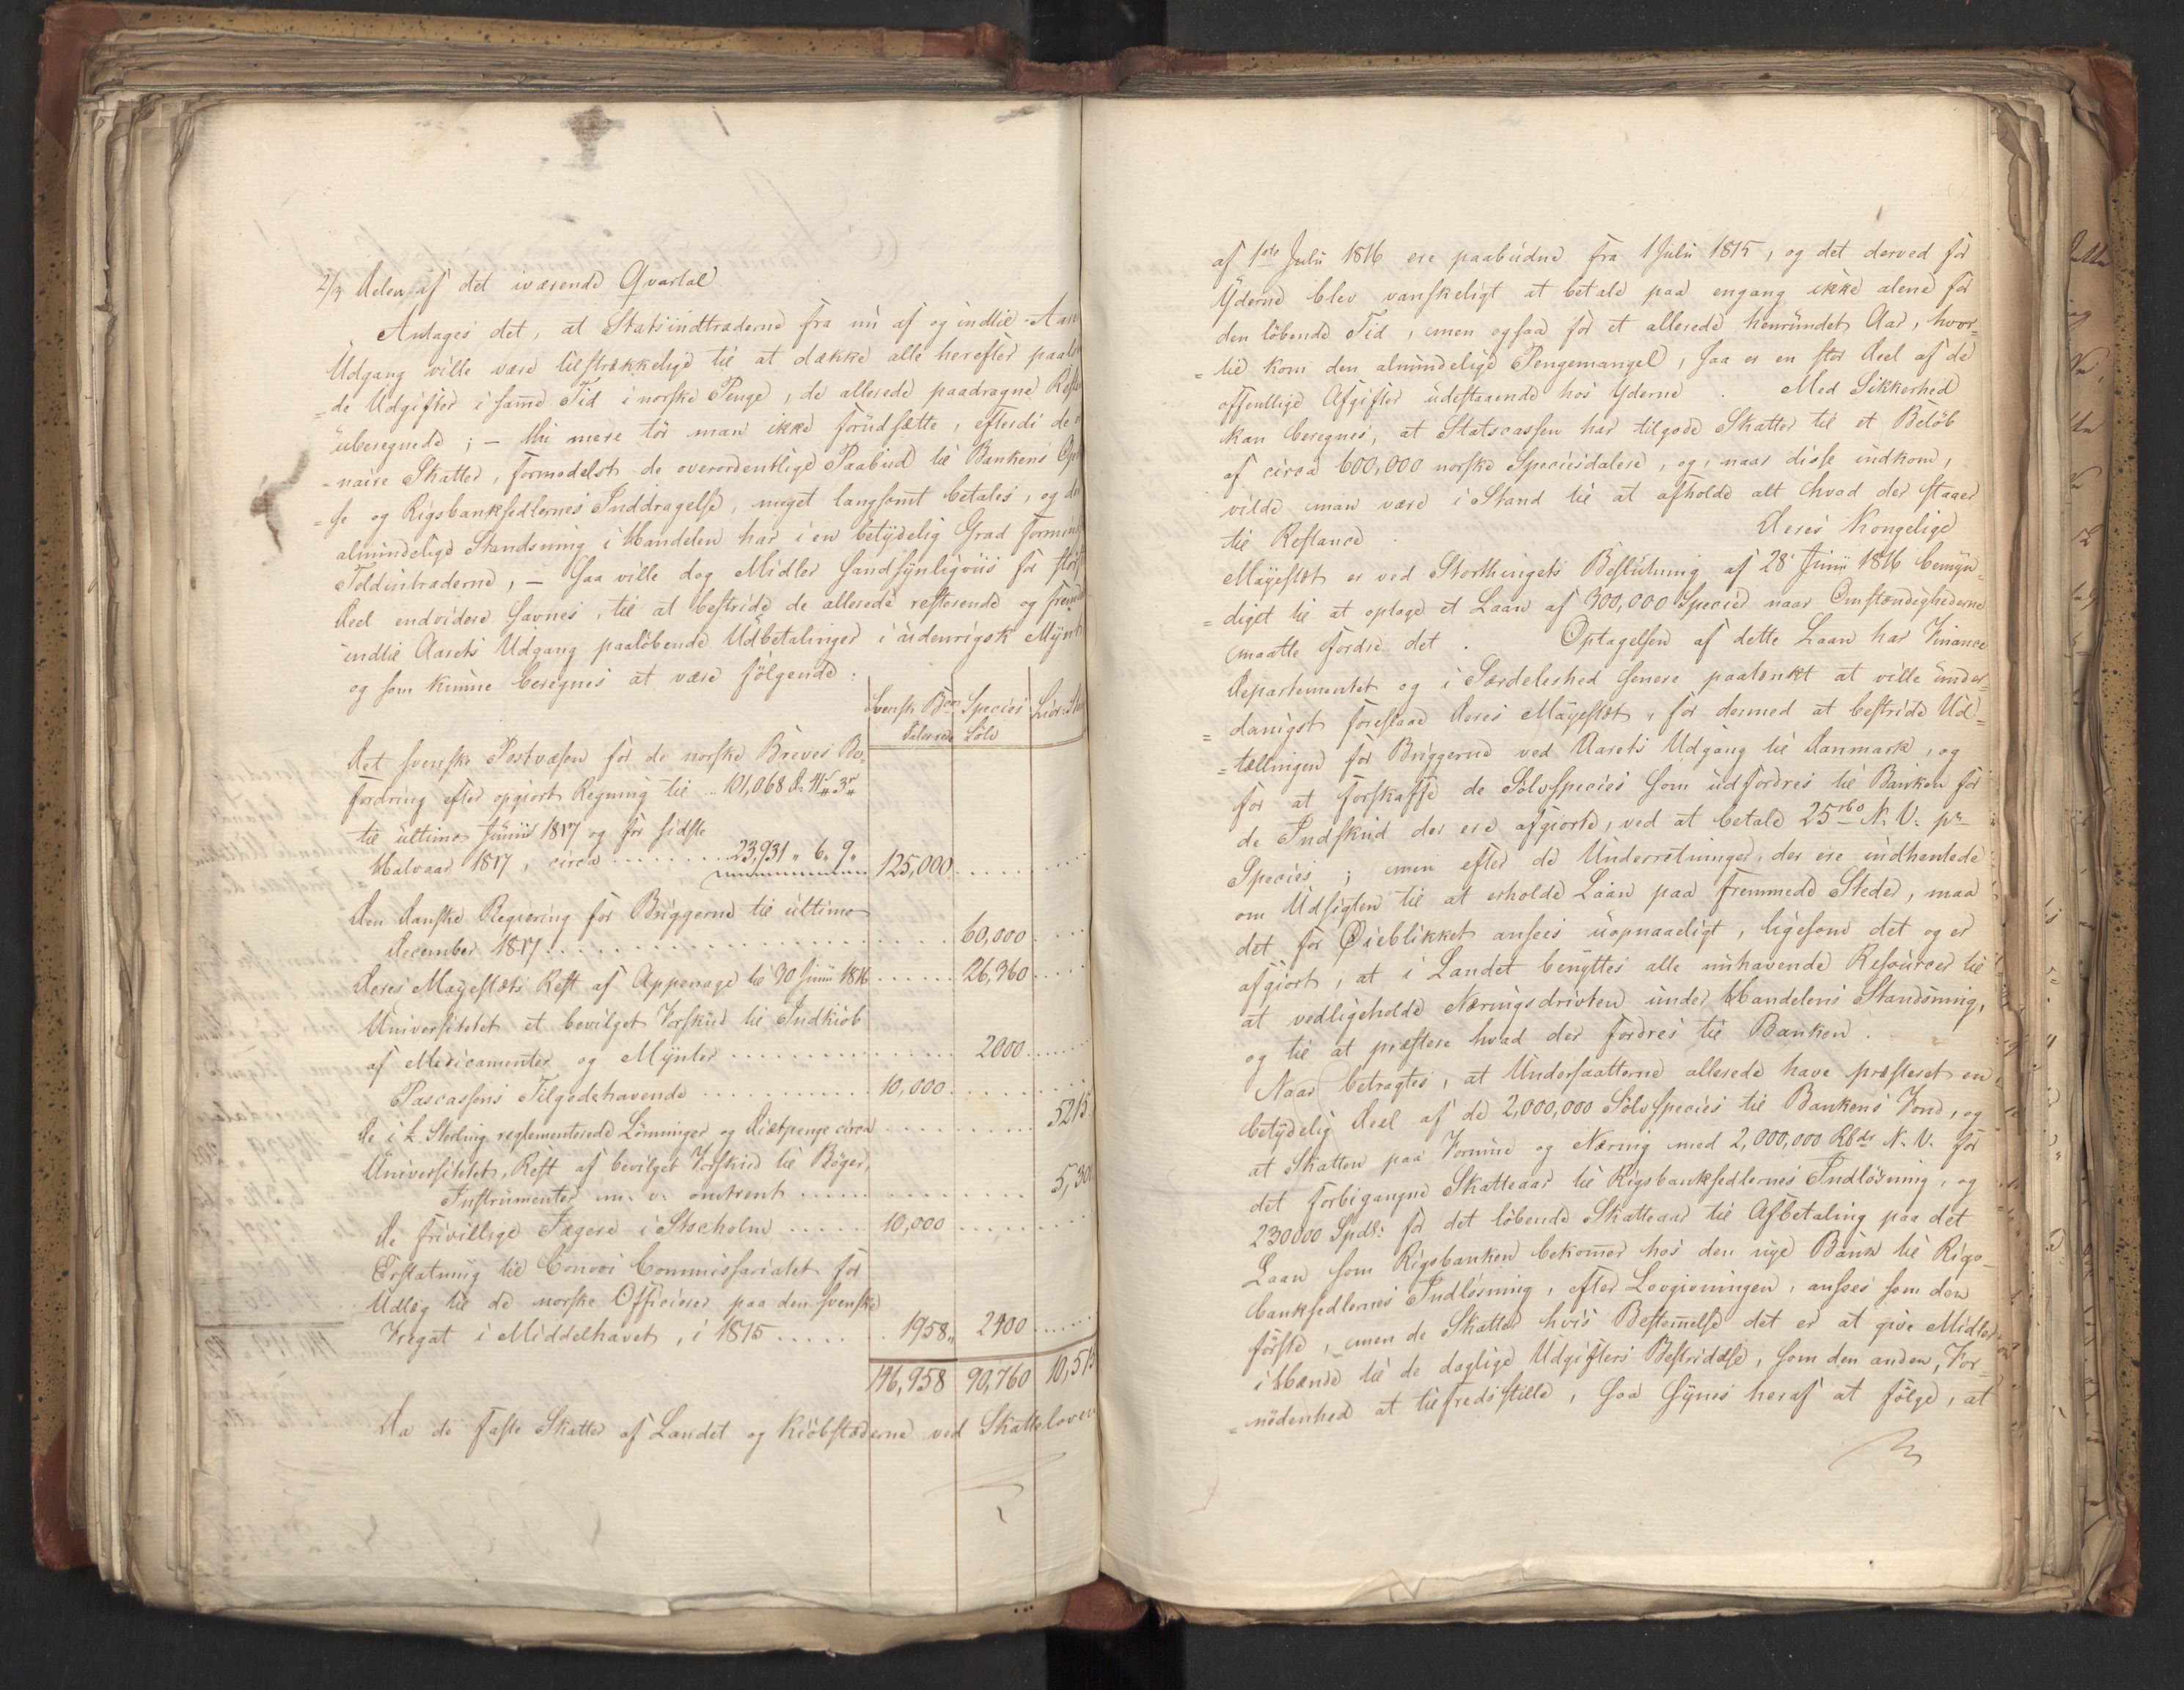 2/3 Delen af det iværende Qvartal
Antages det, at Statsindtraderne fra nu af og indtil Aar
Udgang ville være tilstrækkelige til at dække alle herefter paalø
=de Udgifter i samme Tid i norske Penge, de allerede paadragne Rest
uberegnede; — thi mere tør man ikke forudsætte, efterdi de
-naire Skatter, formedelst de overordentlige Paabud til Bankens Op
=se og Rigsbanksedlernes Inddragelse, meget langsomt betales, og de
almindelige Standsning i Handelen har i en betydelig Grad formind
Toldintraderne, — saa ville dog Midler sandsynligviis for størst
Deel endvidere savnes, til at bestride de allerede resterende og frem
indtil Aarets Udgang paaløbende Udbetalinger i udenrigsk Mynt
og som kunne beregnes at være følgende:
Svensk Bco Species
Dalere Sølv
Det svenske Postvæsen for de norske Breves Be-
fordring efter opgiort Regning til .. 101,068 d. 41 s 3 r
til ultimo Junii 1817 og for sidste
Halvaar 1817, circa ........ 23,931 „ 6. 9„ 125,000 ......
Den danske Regiering for Briggerne til ultimo
December 1817 ........ 60,000 ....
Deres Mayestæts Rest af Appenage til 30 Junii 1816 ...... 26,360 ....
Universitetet et bevilget Forskud til Indkiøb
af Medicamenter og Mynter ........ 2000 ......
Pascassens Tilgodehavende ........ 10,000 ......
De i £ Sterling reglementerede Lønninger og Diætpenge circa ........ 5215
Universitetet, Rest af bevilget Forskud til Bøger,
Instrumenter m. v. omtrent ........ 5,30
De frivillige Jægere i Stocholm ...... 10,000 ......
Erstatning til Convoi Commissariatet for
Udlæg til de norske Officierer paa den svenske
Fregat i Middelhavet, i 1815 ...... 1958„ 2400 ......
146,958 90,760 10,515
Da de faste Skatter af Landet og Kiøbstæderne ved Skatteloven
af 1ste Julii 1816 ere paabudne fra 1 Julii 1815, og det derved for
Yderne blev vanskeligt at betale paa engang ikke alene for
den løbende Tid, men ogsaa for et allerede henrundet Aar, hvor=
=til kom den almindelige Pengemangel, saa er en stor Deel af de
offentlige Afgifter udestaaende hos Yderne. Med Sikkerhed
kan beregnes, at Statscassen har tilgode Skatter til et Beløb
af circa 600,000 norske Speciesdalere, og, naar disse indkom,
vilde man være i Stand til at afholde alt hvad der staaer
til Restance. Deres Kongelige
Mayestæt er ved Storthingets Beslutning af 28 Junii 1816 bemyn=
=diget til at optage et Laan af 300,000 Species naar Omstændighederne
maatte fordre det. Optagelsen af dette Laan har Finance
Departementet og i Særdeleshed senere paatænkt at ville under=
=danigst foreslaae Deres Mayestæt, for dermed at bestride Ud=
=tællingen for Briggerne ved Aarets Udgang til Danmark, og
for at forskaffe de Sølvspecies som udfordres til Banken for
de Indskud der ere afgiorte, ved at betale 25 rbd N. V. pr
Species; men efter de Underretninger, der ere indhentede
om Udsigten til at erholde Laan paa fremmede Steder, maa
det for Øieblikket ansees uopnaaeligt, ligesom det og er
afgiort, at i Landet benyttes alle nuhavende Resourcer til
at vedligeholde Næringsdriften under Handelens Standsning,
og til at præstere hvad der fordres til Banken.
Naar betragtes, at Undersaatterne allerede have præsteret en
betydelig Deel af de 2,000,000 Sølvspecies til Bankens Fond, og
at Skatten paa Formue og Næring med 2,000,000 Rbdr N. V. for
det forbigangne Skatteaar til Rigsbanksedlernes Indløsning, og
230000 Spdr: for det løbende Skatteaar til Afbetaling paa det
Laan som Rigsbanken bekommer hos den nye Bank til Rigs-
banksedlernes Indløsning, efter Lovgivningen, ansees som den
første, men de Skatter hvis Bestemmelse det er at give Midler
i Hænde til de daglige Udgifters Bestridelse, som den anden, For=
=nødenhed at tilfredsstille, saa synes heraf at følge, at